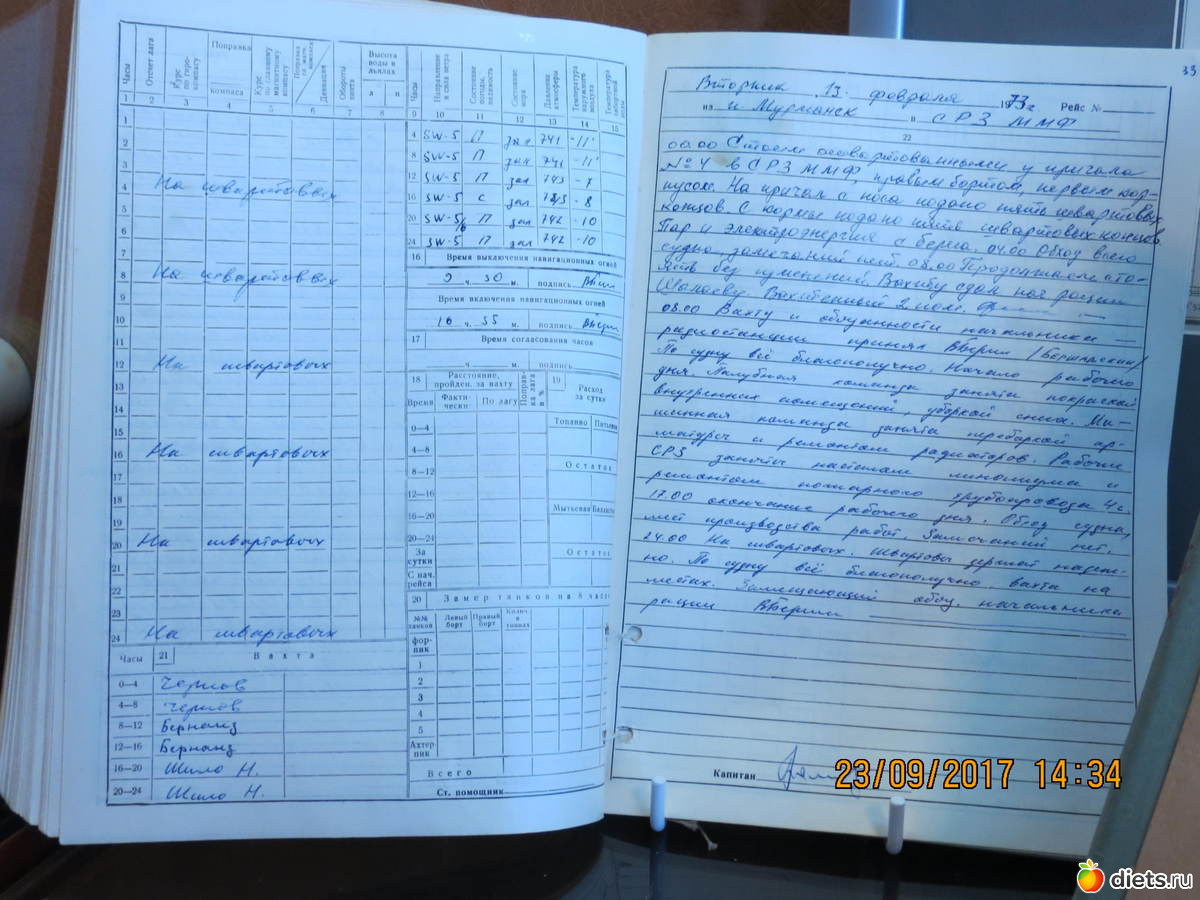 Часы
Отсчет лага
Курс по гиро-компасу
Поправка
компаса
Курс по главному магнитному компасу
Поправка магн. компаса
Девиация
Обороты винта
Высота воды в льялах
л
п
1 2 3 4 5 6 7 8
1
2
3
4 На швартовых
5
6
7
8 На швартовых
9
10
11
12 На швартовых
13
14
15
16 На швартовых
17
18
19
20 На швартовых
21
22
23
24 На швартовых
Часы 21 Вахта
0—4 Чернов
4—8 Чернов
8—12
12—16
16—20 Шило Н.
20—24 Шило Н.
Часы
Направление и сила ветра
Состояние погоды,
Состояние моря
Давление атмосферы
Температура наружного воздуха
Температура забортной воды
9 10 11 12 13 14 15
4 SW-5 П зал 741 -11°
8 SW-5 П зал 741 -11°
12 SW-5 П зал 743 -7
16 SW-5 С зал 743 -8
20 SW-5/6 П зал 742 -10
24 SW-5 П зал 742 -10
16 Время выключения навигационных огней
9 ч. 30 м. подпись
Время включения навигационных огней
16 ч. 35 м. подпись
17 Время согласования часов
ч. м. подпись
18 Расстояние, пройден. за вахту
Поправка лага в %
19 Расход за сутки
Время Факти-чески По лагу
0—4
Топливо Питьевая
4—8
8—12
Остаток
12—16
16—20
Мытьевая
20—24
За сутки
Остаток
С нач. рейса
20 Замер танков на 8 часов
№№ танков
Левый борт
Правый борт
Колич. в тоннах
фор-пик
1
2
3
4
5
Ахтер-пик
Всего
Ст. помощник
33
Вторник 13 февраля 1973г Рейс №
из п Мурманск в СРЗ ММФ
22
00.00 Стоим ошвартованными у причала
№4 в СРЗ ММФ, правым бортом, первым кор-
пусом. На причал с носа подано пять швартовых
концов. С кормы подано пять швартовых концов.
Пар и электроэнергия с берега. 04.00 Обход всего
судна, замечаний нет. 08.00 Продолжаем сто-
ять без изменений. Вахту сдал нач рации
Вахтенный 2 пом.
08.00 Вахту и обязанности начальника
радиостанции принял
По судну всё благополучно. Начало рабочего
дня. Палубная команда занята покраской
внутренних помещений, уборкой снега. Ма-
шинная команда занята переборкой ар-
матуры и ремонтом радиаторов. Рабочие
СРЗ заняты настилом линолеума и
ремонтом пожарного трубопровода 4с.
17.00 окончание рабочего дня. Обход судна,
мест производства работ. Замечаний нет.
24.00 На швартовых. Швартовы держат надеж-
но. По судну всё благополучно вахта на
местах. Замещающий обяз. начальника
рации
Капитан
23/09/2017 14:34
diets.ru